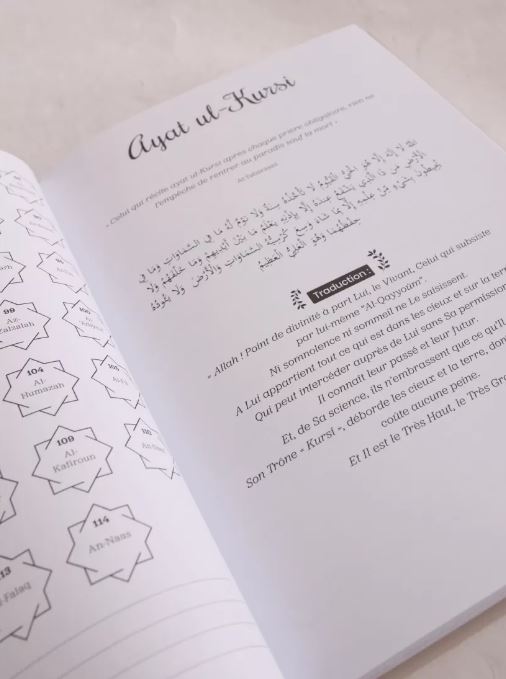 99
Az-
Zalzalah
100
104
Al-
Humazah
109
Al-
Kafiroun
110
114
An-Naas
113
Al-Falaq
Ayat ul-Kursi
« Celui qui récite ayat ul-Kursi après chaque prière obligatoire, rien ne
l'empêche de rentrer au paradis sauf la mort »
At-Tabarani
اللَّهُ لَا إِلَٰهَ إِلَّا هُوَ الْحَيُّ الْقَيُّومُ لَا تَأْخُذُهُ سِنَةٌ وَلَا نَوْمٌ لَهُ مَا فِي السَّمَاوَاتِ وَمَا فِي
الْأَرْضِ مَنْ ذَا الَّذِي يَشْفَعُ عِنْدَهُ إِلَّا بِإِذْنِهِ يَعْلَمُ مَا بَيْنَ أَيْدِيهِمْ وَمَا خَلْفَهُمْ وَلَا
يُحِيطُونَ بِشَيْءٍ مِنْ عِلْمِهِ إِلَّا بِمَا شَاءَ وَسِعَ كُرْسِيُّهُ السَّمَاوَاتِ وَالْأَرْضَ وَلَا يَئُودُهُ
حِفْظُهُمَا وَهُوَ الْعَلِيُّ الْعَظِيمُ
Traduction :
« Allah ! Point de divinité à part Lui, le Vivant, Celui qui subsiste
par lui-même "Al-Qayyoûm".
Ni somnolence ni sommeil ne Le saisissent.
A Lui appartient tout ce qui est dans les cieux et sur la terre
Qui peut intercéder auprès de Lui sans Sa permission
Il connaît leur passé et leur futur.
Et, de Sa science, ils n'embrassent que ce qu'Il
Son Trône « Kursî », déborde les cieux et la terre, dont
coûte aucune peine.
Et Il est le Très Haut, le Très Gra